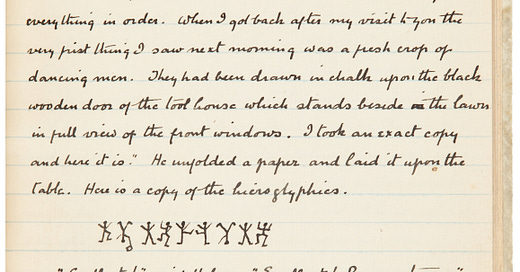 everything in order. When I got back after my visit to you the
very first thing I saw next morning was a fresh crop of
dancing men. They had been drawn in chalk upon the black
wooden door of the tool house which stands beside the lawn
in full view of the front windows. I took an exact copy
and here it is." He unfolded a paper and laid it upon the
table. Here is a copy of the hieroglyphics.